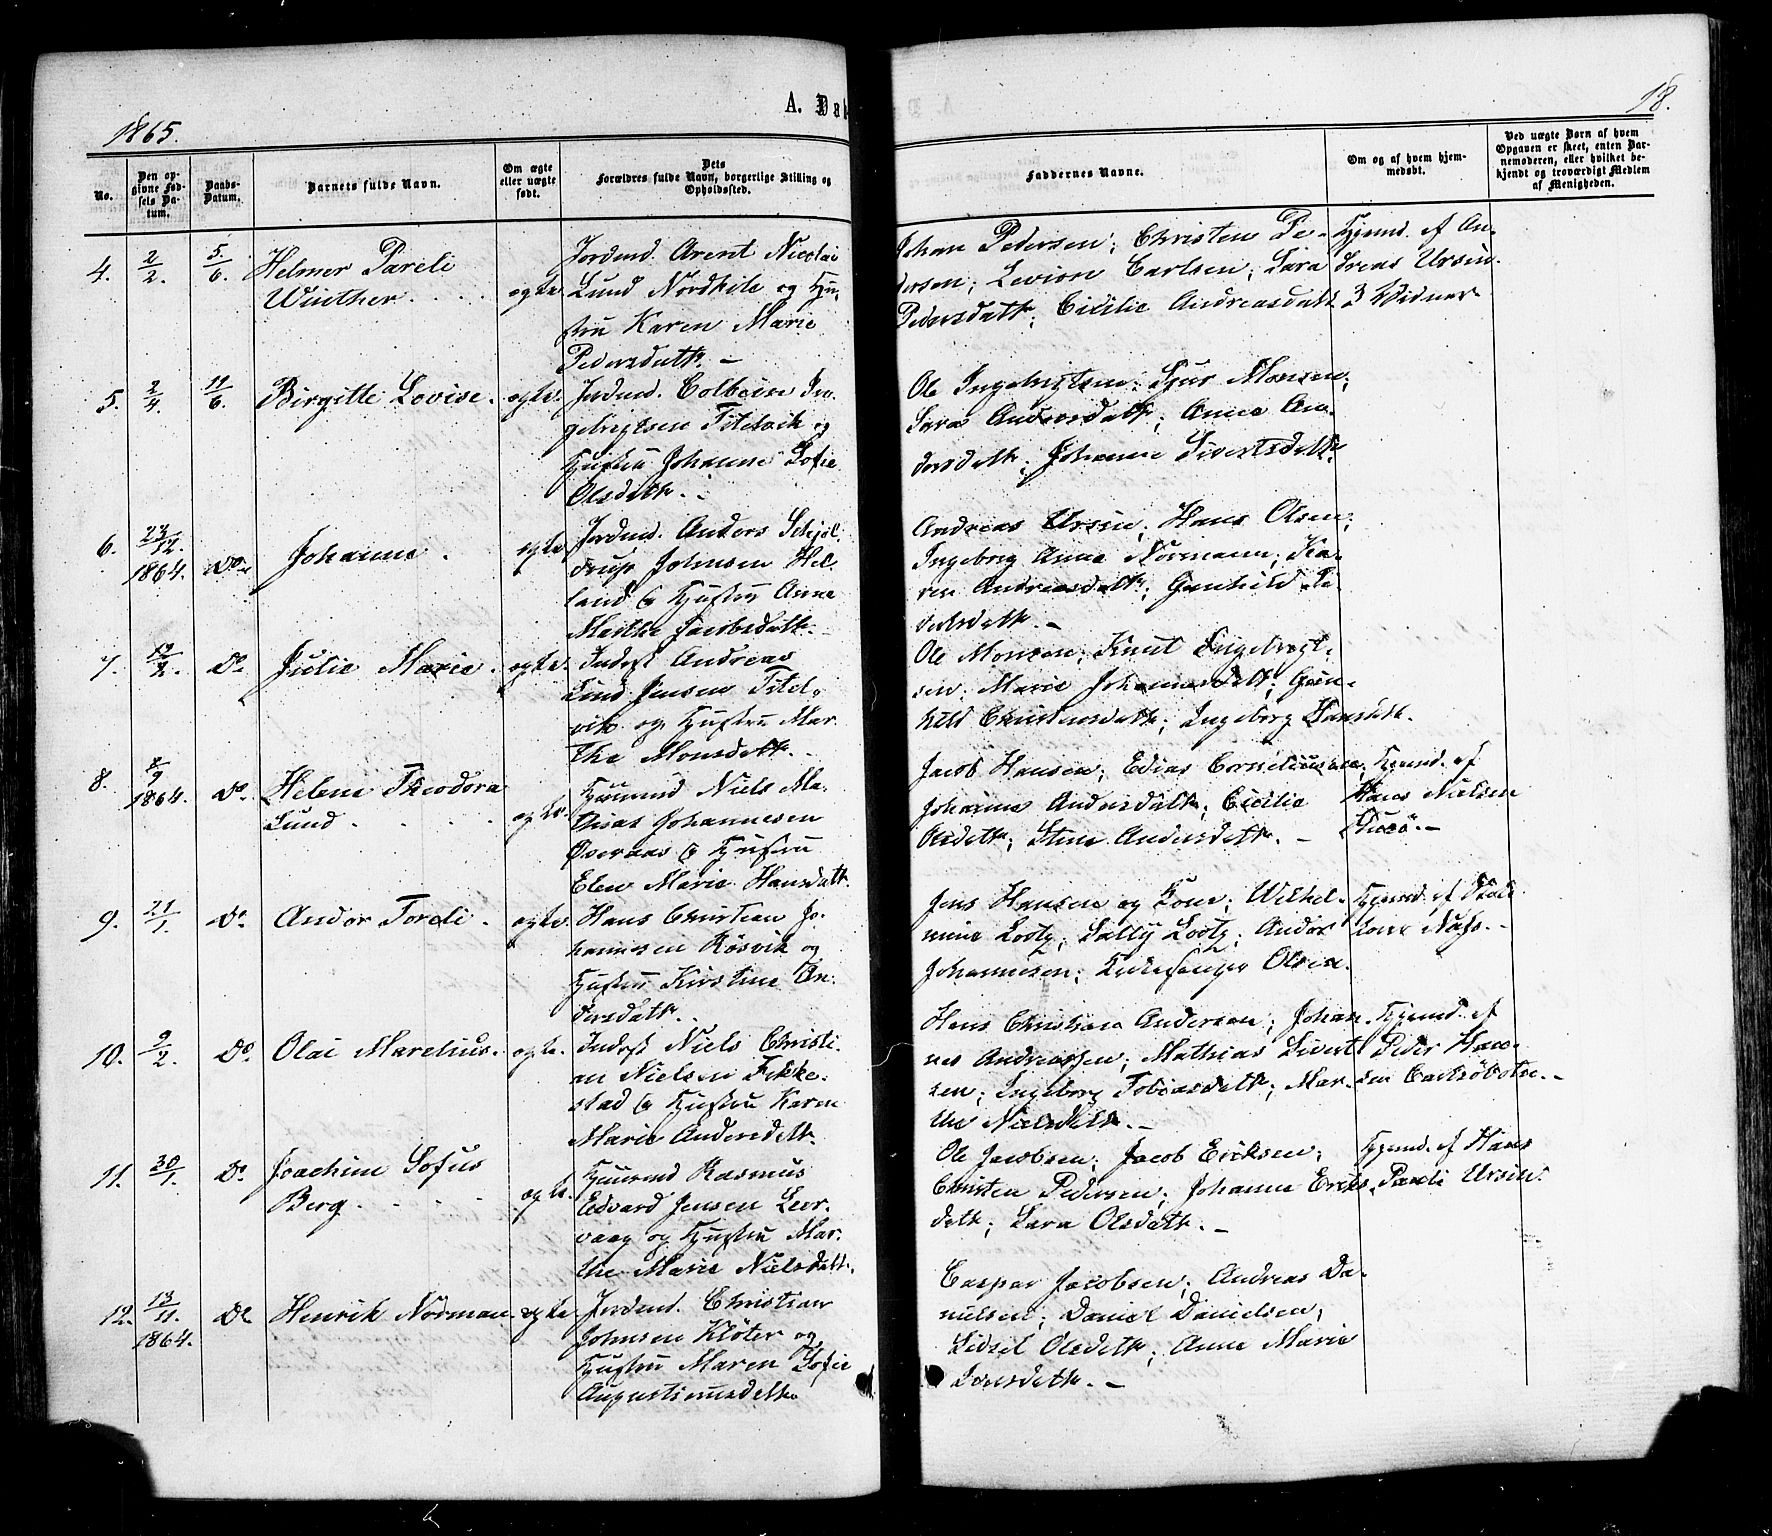 1865.
A. Døb
18.
No.
Den opgivne Fødsels Datum.
Daabs-Datum.
Barnets fulde Navn.
Om ægte eller uægte født.
Dets Forældres fulde Navn, borgerlige Stilling og Opholdssted.
Faddernes Navne.
Om og af hvem hjemmedøbt.
Ved uægte Børn af hvem Opgaven er skeet, enten Barnemoderen, eller hvilket bekjendt og troværdigt Medlem af Menigheden.
4. 2/2. 5/6. Helmer Pareli
Winther. ægte.
Jordmd. Arent Nicolai
Lund Nordkile og Hu-
stru Karen Marie
Pedersdatt. –
Johan Pedersen; Christen Pe-
dersen; Carlsen; Sara
Pedersdatt; Cicilie Andreasdatt
Hjemd. af An-
dreas Ursin.
3 Vidner
5. 2/4. 11/6. Birgitte Lovise. ægte.
Jordmd. Colbein In-
gebrigtsen Titelvik og
Hustru Johanne Sofie
Olsdatt.
Ole Ingebrigtsen; Sjur Monsen;
Sara Andersdatt; Anne An-
dersdatt; Johanne Sivertsdatt.
6. 23/12. 1864. Do. Johanna. ægte
Jordmd. Anders Schjel-
drup Johnsen Hel-
land og Hustru Anne
Marthe Jacobsdatt.
Andreas Ursin; Hans Olsen;
Ingeborg Anna Normann; Ka-
ren Andreasdatt; Gunhild Di-
driksdatt. –
7. 12/2. Do. Julie Marie. ægte.
Inderst Andreas
Lind Jensen Titel-
vik og Hustru Mar-
tha Monsdatt.
Ole Monsen; Knut Ingebrigt-
sen; Marie Johannesdatt; Gun-
hild Christensdatt; Ingeborg Hansdatt.
8. 8/9 1864. Do. Helena Theodora
Lund. ægte.
Huusmd Niels Ma-
thias Johannesen
Øveraas og Hustru
Elen Marie Hansdatt.
Jacob Hansen; Edias Corneliussen;
Johanna Andersdatt; Cicilie
Olsdatt; Stine Andersdatt. –
Hjemd. af
Hans Nielsen
9. 21/1. Do. Andor Toreli. ægte.
Hans Christian Jo-
hannesen Røsvik og
Hustru Kirstine An-
dersdatt.
Jens Hansen og Kone; Wilhel-
mine Lootz; Lootz; Andor
Johannesen; Kirkesanger Olsen.
Hjemd. af
10. 9/2. Do. Olai Marelius. ægte.
Inderst Niels Christi-
an Nielsen Fikke-
stad og Hustru Karen
Marie Andersdatt.
Hans Christian Andersen; Johan-
nes Andreassen; Mathias Sivert-
sen; Ingeborg Tobiasdatt; Mar-
the Nielsdatt. –
Hjemd. af
Peder Han-
sen
11. 30/1. Do. Joachim Sofus
Berg. ægte.
Huusmd Rasmus
Edvard Jensen Leer-
vaag og Hustru Mar-
the Marie Nielsdatt.
Ole Jacobsen; Jacob Eriksen;
Christen Pedersen; Johanne Eriks-
datt; Sara Olsdatt. –
Hjemd. af Hans
Pareli Ursin.
12. 13/11. 1864. Do. Henrik Norman. ægte
Jordmd. Christian
Johnsen Kløter og
Hustru Maren Sofie
Augustinusdatt.
Caspar Jacobsen; Andreas Da-
nielsen; Daniel Danielsen;
Sidsel Olsdatt; Anne Marie
Larsdatt. –